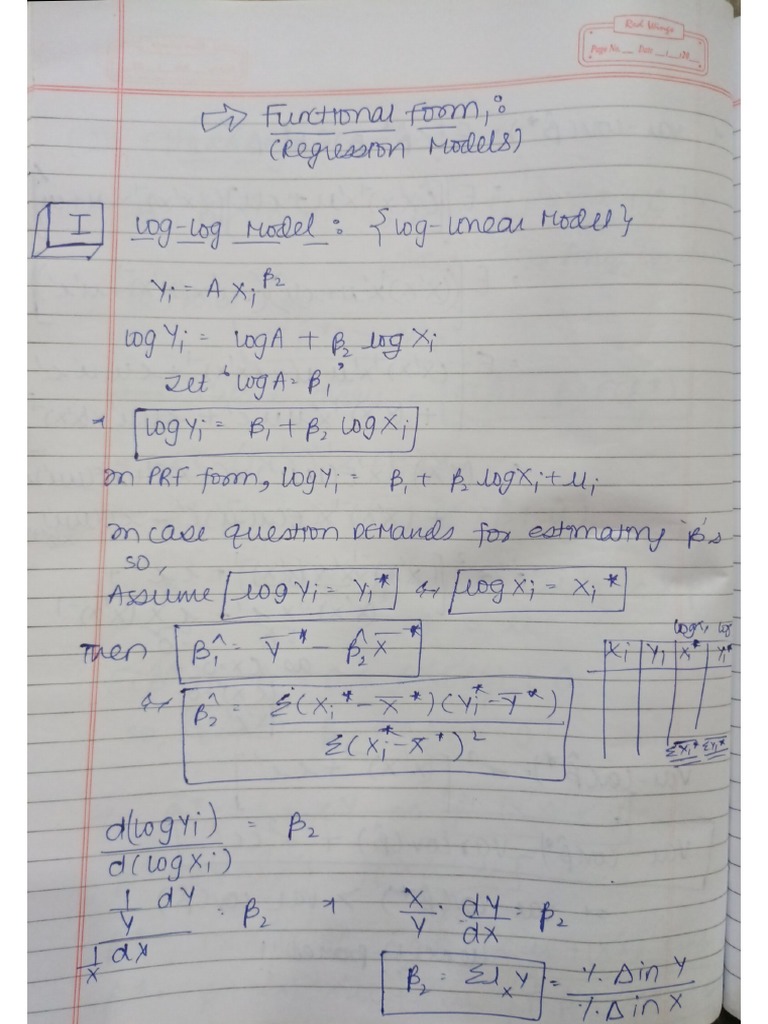 Red Wings
Page No. Date / /20
⇨ Functional form,:
(Regression Models)
I Log-Log Model: {Log-Linear Model}
Yi = A Xi^β2
log Yi = log A + β2 log Xi
Let 'log A = β1'
log Yi = β1 + β2 log Xi
In PRF form, log Yi = β1 + β2 log Xi + ui
In case question DEMANDS for estimating 'β's
so,
Assume log Yi = Yi* & log Xi = Xi*
Then β1^ = Y̅* - β2^ X̅*
& β2^ = Σ(Xi* - X̅*)(Yi* - Y̅*) / Σ(Xi* - X̅*)²
logXi log
Xi Yi X* Yi*
ΣXi* ΣYi*
d(log Yi) / d(log Xi) = β2
1/Y dY / 1/X dX = β2 X/Y · dY/dX = β2
β2 = Σlx Y = %Δ in Y / %Δ in X